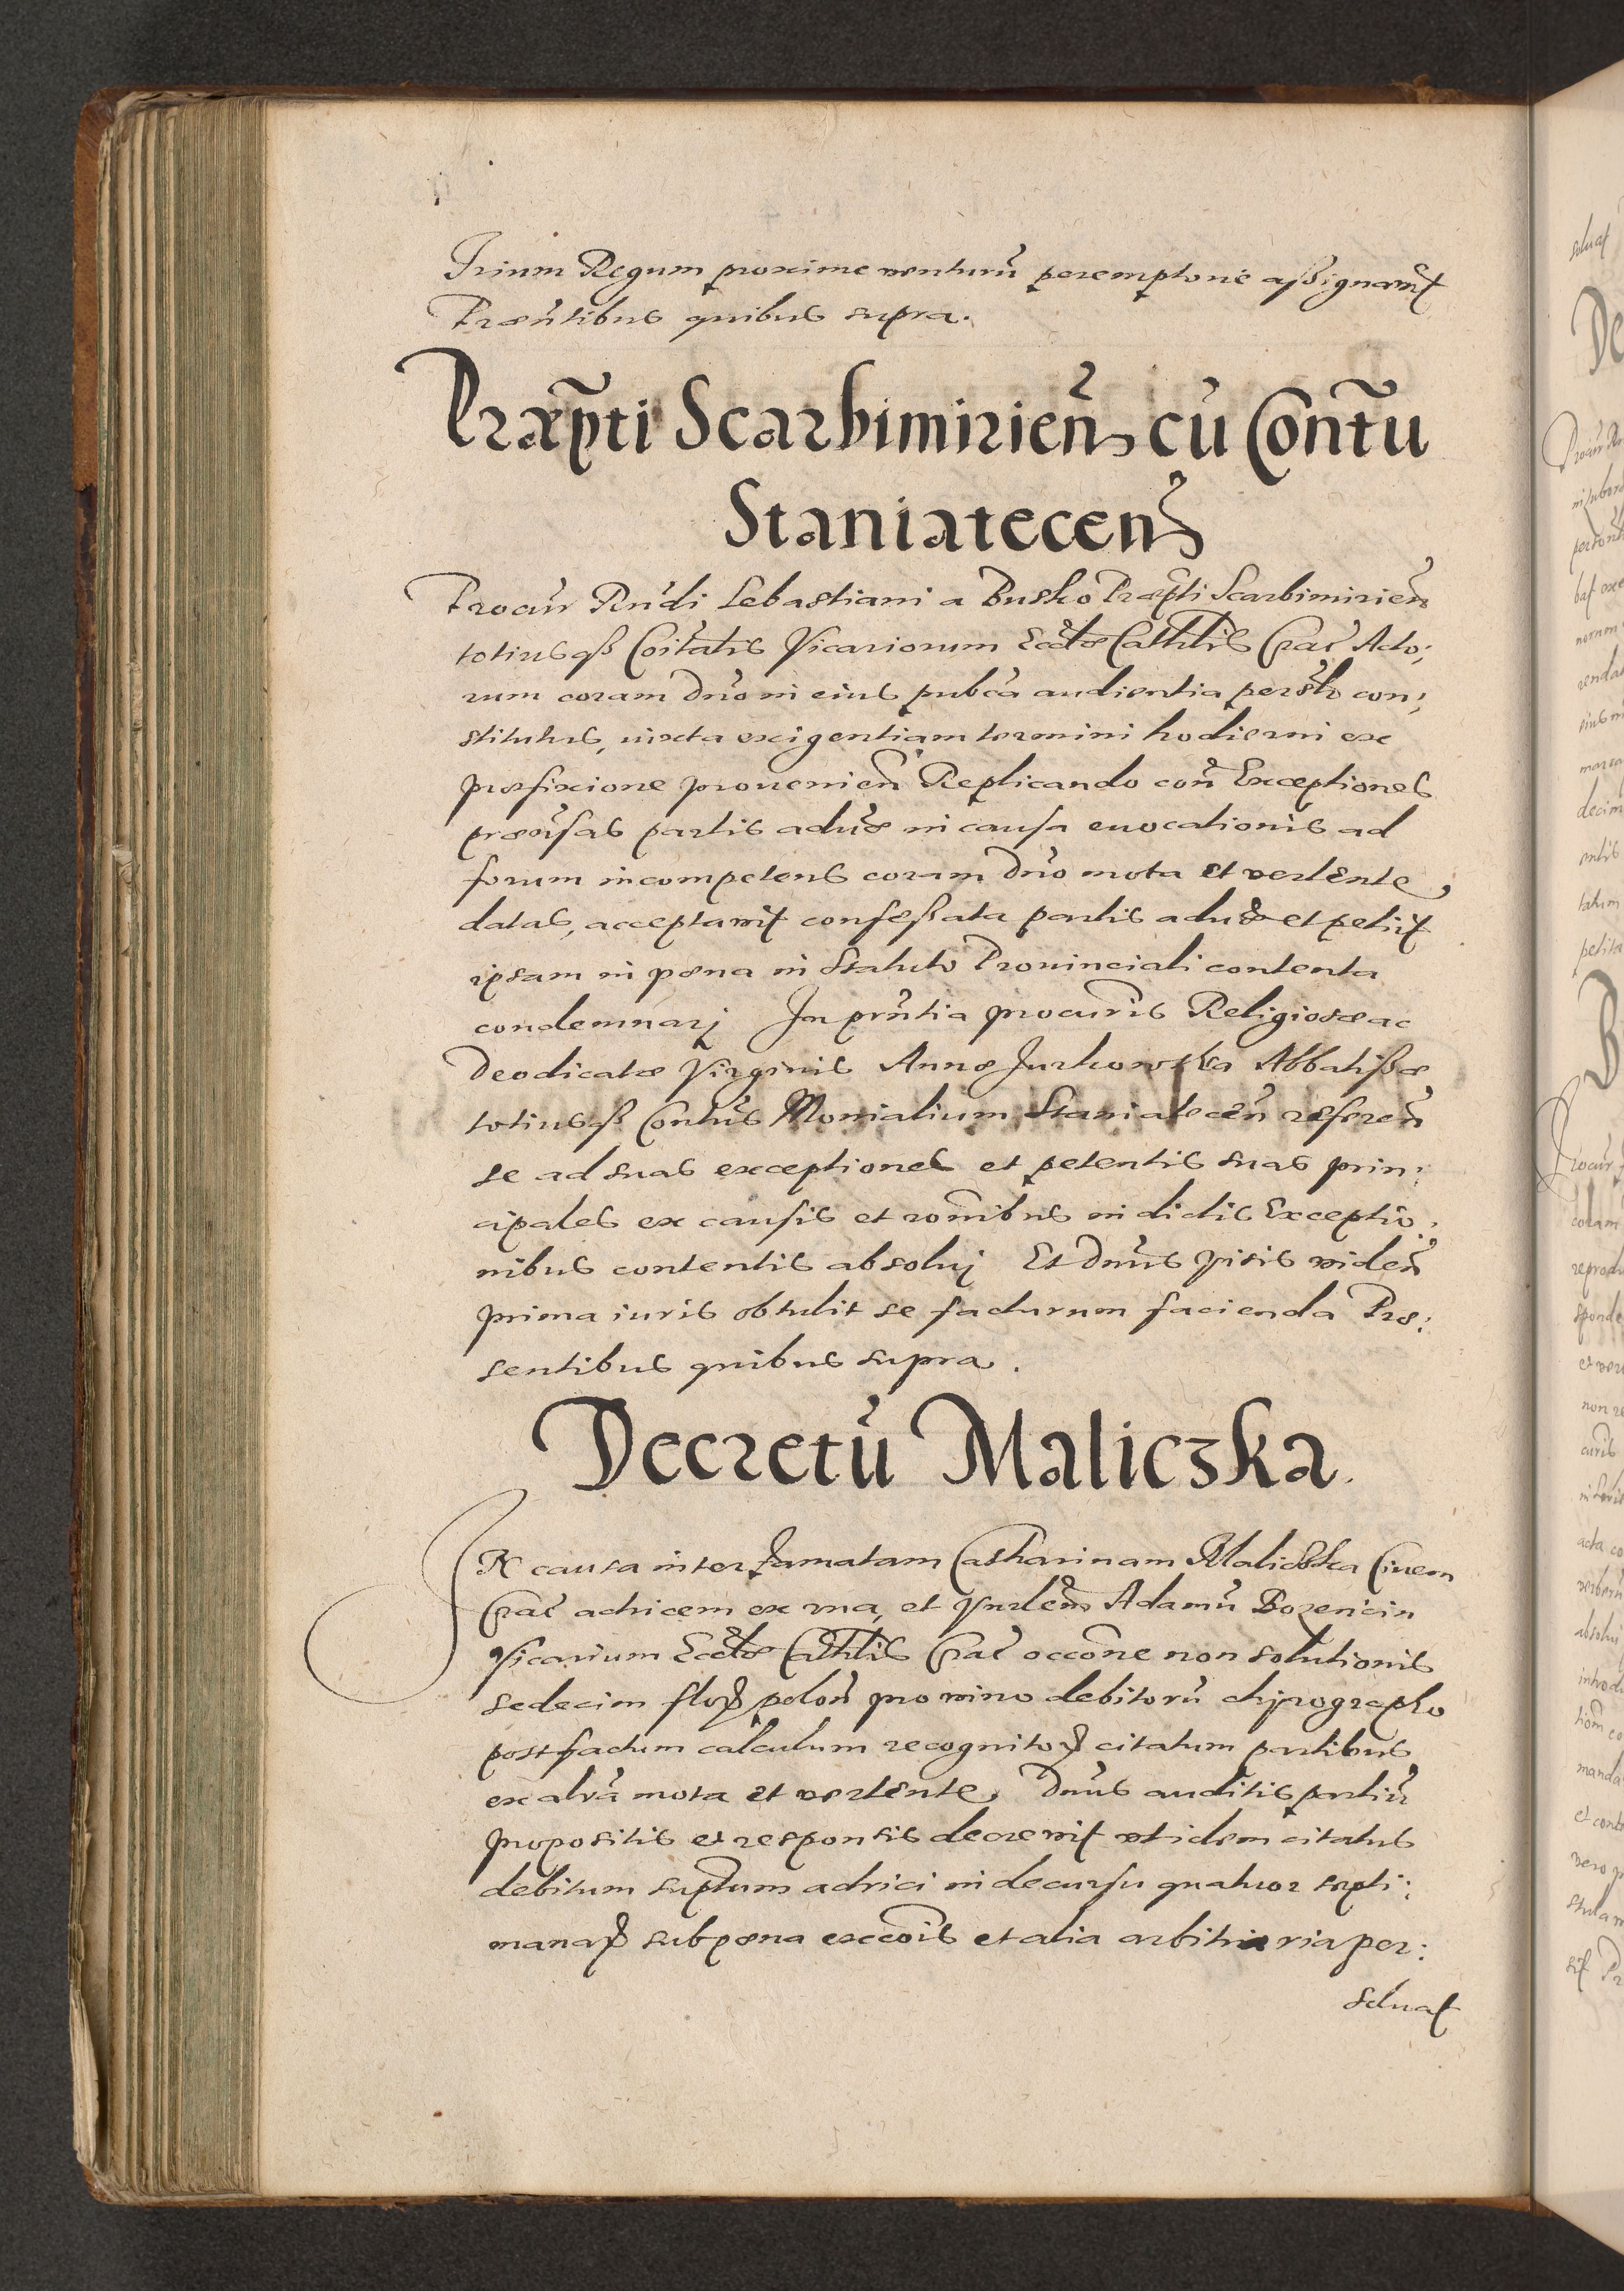 Trium Regum proxime venturũ peremptorie aßignavit
Præsñtibus quibus supra.
Præpti Scarbimirień cũ Contũ
Staniateceń
Procur Rndi Sebastiani a Busko Præpti Scarbimirień
totiusqß Coitatis Vicariorum Eccłæ Cathlis Crac Acto;
rum coram Dno in eius pubca audientia persłr con;
stitutus, iuxta exigentiam termini hodierni ex
præfixione provenień Replicando coñ Exceptiones
prætensas partis aduæ in causa euocationis ad
forum incompetens coram Dño mota et vertente,
datas, acceptavit confeßata partis aduæ et petiit
ipsam in pœna in Statuto Prouinciali contenta
condemnarj In prñtia procuris Religiosæ ac
Deodicatæ Virginis Annæ Jurkowska Abbatißæ
totiusqß Contus Monialium Staniateceń refereń
se ad suas exceptiones et petentis suas prin;
cipales ex causis et roñibus in dictis Exceptio,
nibus contentis absoluj Et Dnus visis videń
prima iuris obtulit se facturum facienda Præ:
sentibus quibus supra.
Decretũ Maliczka.
IN causa inter famatam Catharinam Maliczka Ciuem
Crac actricem ex vna, et Vnrlem Adamũ Bozencin
Vicarium Eccłæ Cathlis Crac occone non solutionis
sedecim flor poloń pro vino debitorũ chirographo
post factum calculum recognitor citatum partibus
ex altrã mota et vertente, Dnus auditis partiũ
propositis et responsis decrevit vt idem citatus
debitum suptum actrici in decursu quatuor septi:
manar sub pœna excoĩs et alia arbitraria per:
soluat